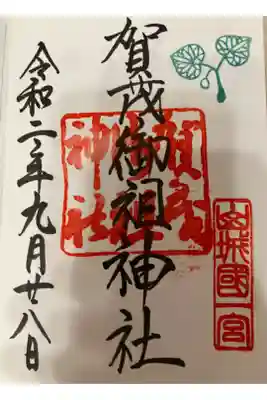 山城國一宮
賀茂御祖神社
賀茂
神社
令和二年九月廿八日